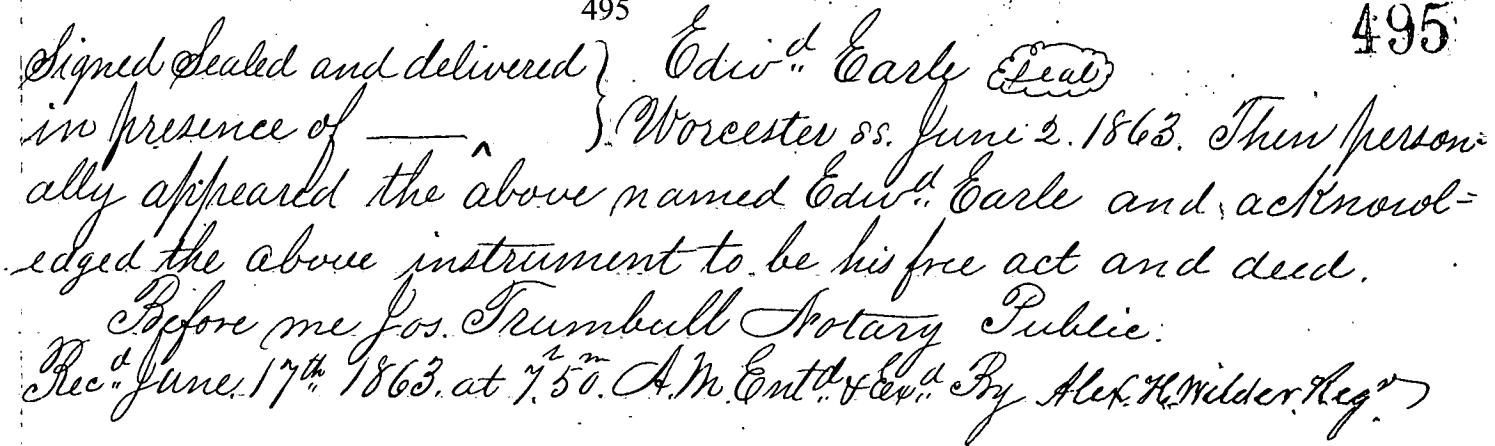 495
495
Signed Sealed and delivered } Edwd Earle Seal
in presence of — ^ } Worcester ss. June 2. 1863. Then person=
ally appeared the above named Edwd Earle and acknowl=
edged the above instrument to be his free act and deed.
Before me Jos. Trumbull Notary Public.
Recd June 17th 1863. at 7h 50m A.M. Entd & Exd By Alex. H. Wilder Regr